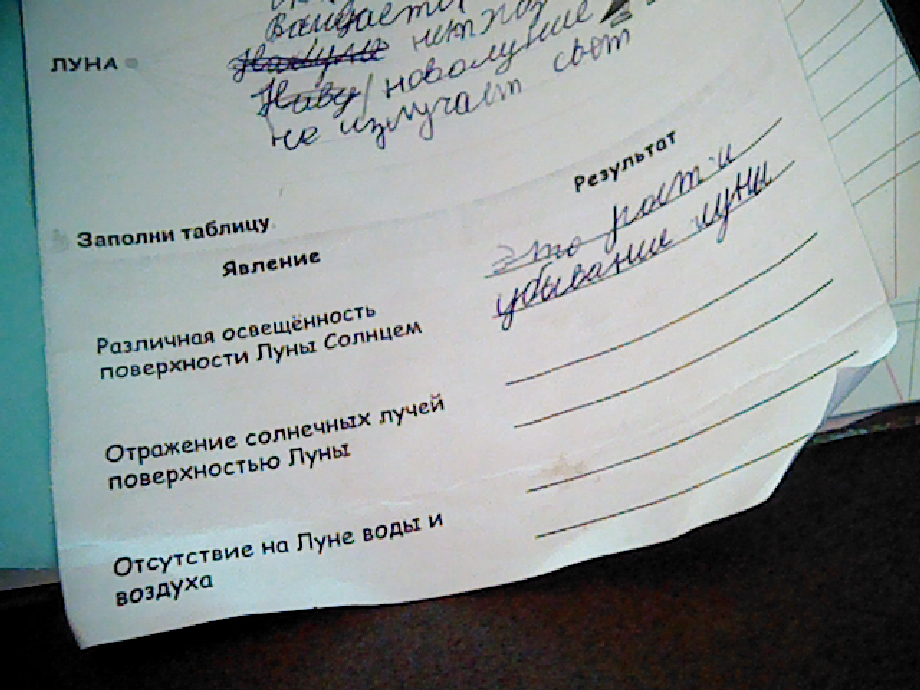 ЛУНА
не излучает свет
новолуние
Заполни таблицу
Явление
Результат
Различная освещённость
поверхности Луны Солнцем
Это рост и
убывание луны
Отражение солнечных лучей
поверхностью Луны
Отсутствие на Луне воды и
воздуха